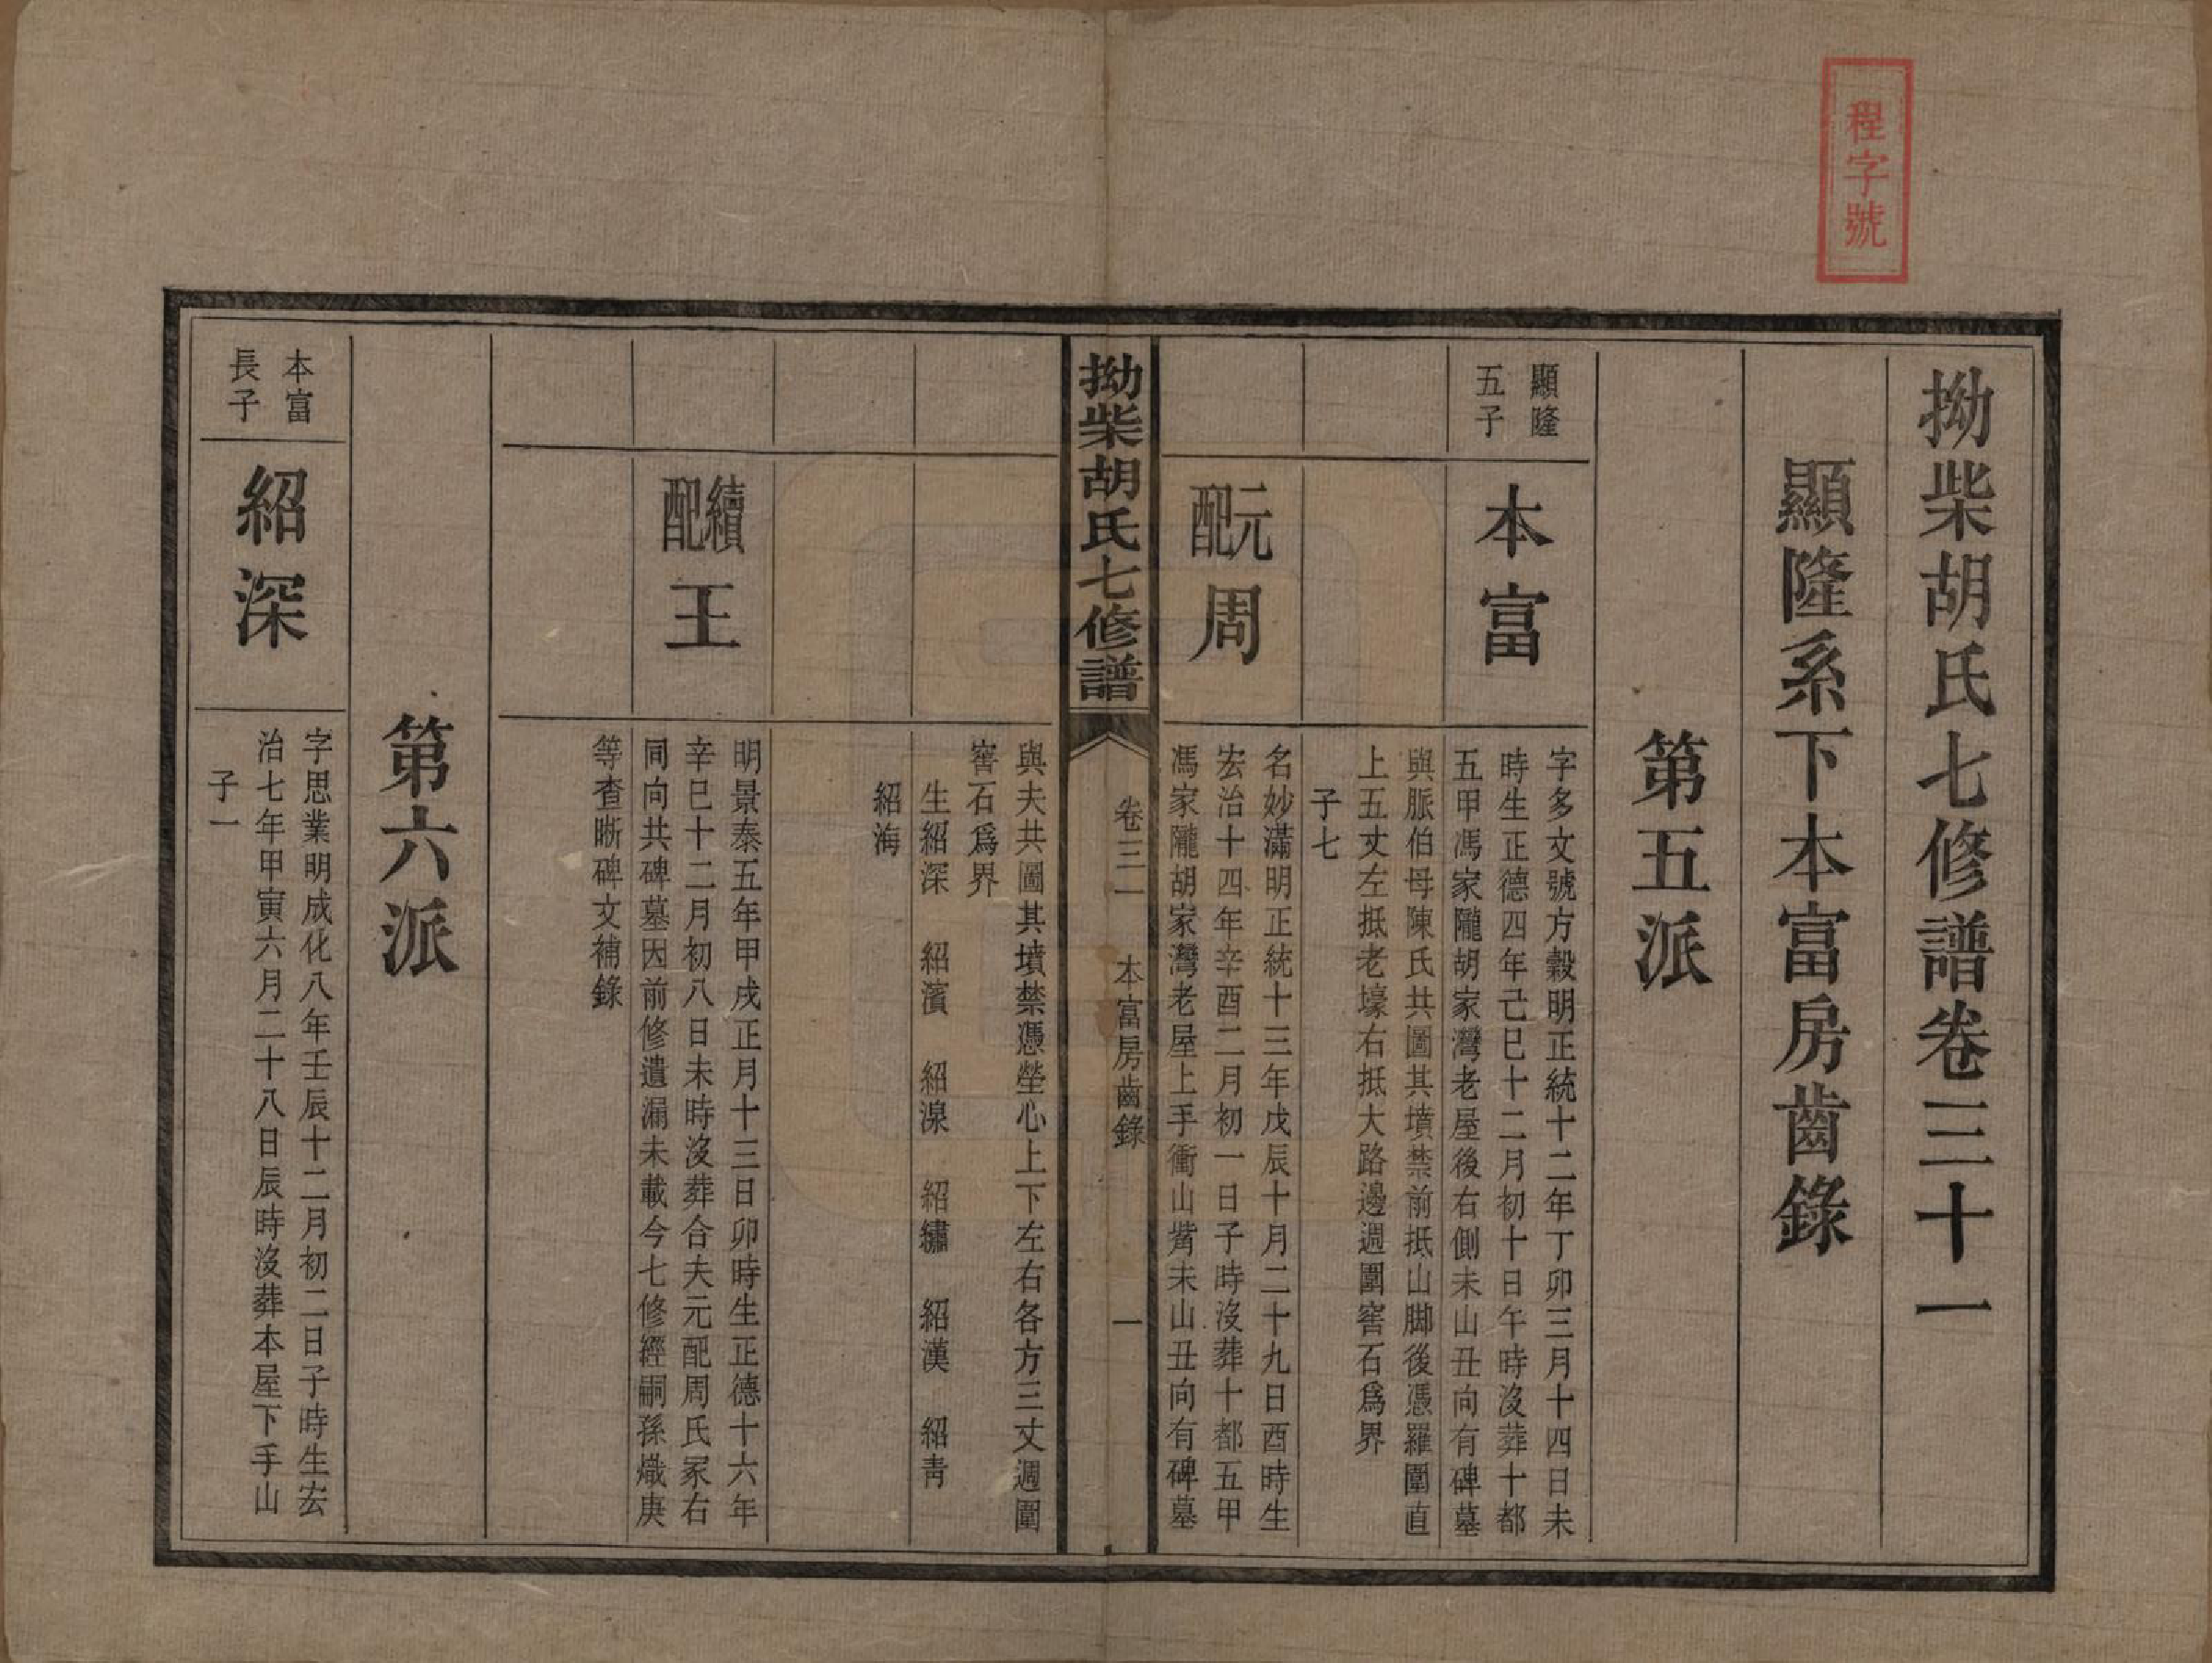 程字號
拗柴胡氏七修譜卷三十一
顯隆系下本富房齒錄
第五派
顯隆
五子
本富
字多文號方穀明正統十二年丁卯三月十四日未
時生正德四年己巳十二月初十日午時沒葬十都
五甲馮家隴胡家灣老屋後右側未山丑向有碑墓
與脈伯母陳氏共圖其墳禁前抵山脚後憑羅圍直
上五丈左抵老壕右抵大路邊週圍窖石爲界
子七
元配
周
名妙滿明正統十三年戊辰十月二十九日酉時生
宏治十四年辛酉二月初一日子時沒葬十都五甲
馮家隴胡家灣老屋上手衝山觜未山丑向有碑墓
拗柴胡氏七修譜
卷三一
本富房齒錄
一
與夫共圖其墳禁憑塋心上下左右各方三丈週圍
窖石爲界
生紹深 紹濱 紹湶 紹繡 紹漢 紹靑
紹海
續配
王
明景泰五年甲戌正月十三日卯時生正德十六年
辛巳十二月初八日未時沒葬合夫元配周氏冢右
同向共碑墓因前修遺漏未載今七修經嗣孫熾庚
等查晰碑文補錄
第六派
本富
長子
紹深
字思業明成化八年壬辰十二月初二日子時生宏
治七年甲寅六月二十八日辰時沒葬本屋下手山
子一